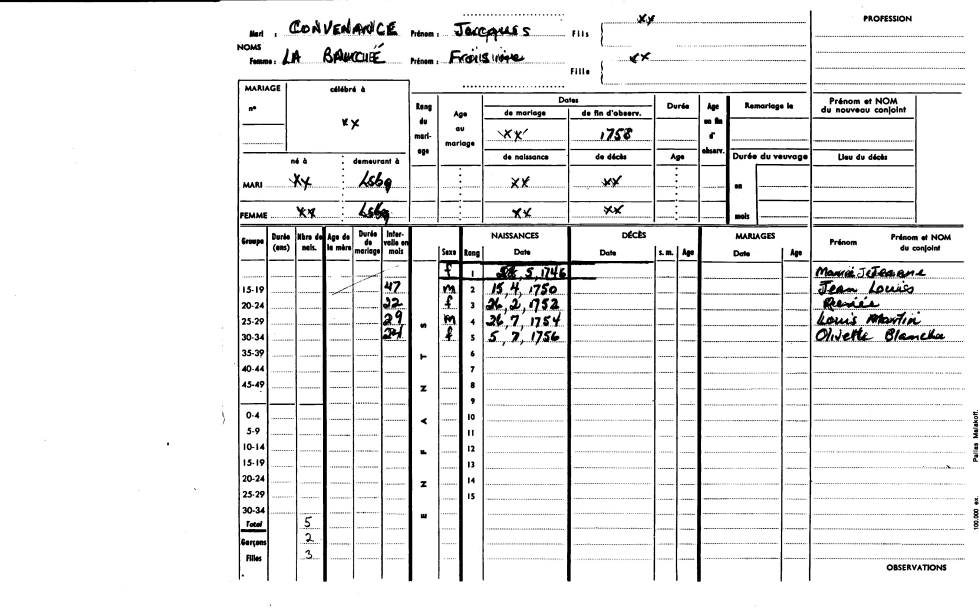 xx
PROFESSION
Mari : CONVENANCE Prénom : Jacques Fils
NOMS
Femme : LA BAUCHÉ Prénom : xx
Fille
MARIAGE célébré à
n°
xx
Rang du mari-age
Age au mariage
Dates
de mariage de fin d'observ.
xx 1758
de naissance de décès
Durée
Age
Age en fin d'observ.
Remariage le
Prénom et NOM du nouveau conjoint
Durée du veuvage
Lieu du décès
né à demeurant à
MARI xx Lsbg xx xx en
FEMME xx Lsbg xx xx mois
Groupe Durée (ans) Nbre de nais. Age de la mère Durée de mariage Inter-valle en mois Sexe Rang NAISSANCES Date DÉCÈS Date s. m. Age MARIAGES Date Age Prénom Prénom et NOM du conjoint
f 1 5, 1746
15-19 47 m 2 15, 4, 1750 Jean Louis
20-24 22 f 3 26, 2, 1752 Renée
25-29 29 m 4 26, 7, 1754 Louis Martin
30-34 f 5 5, 7, 1756 Olivette Blanche
35-39 6
40-44 7
45-49 8
9
0-4 10
5-9 11
10-14 12
15-19 13
20-24 14
25-29 15
30-34
Total 5
Garçons 2
Filles 3
ENFANTS
OBSERVATIONS
100.000 ex. Pallas Malakoff.